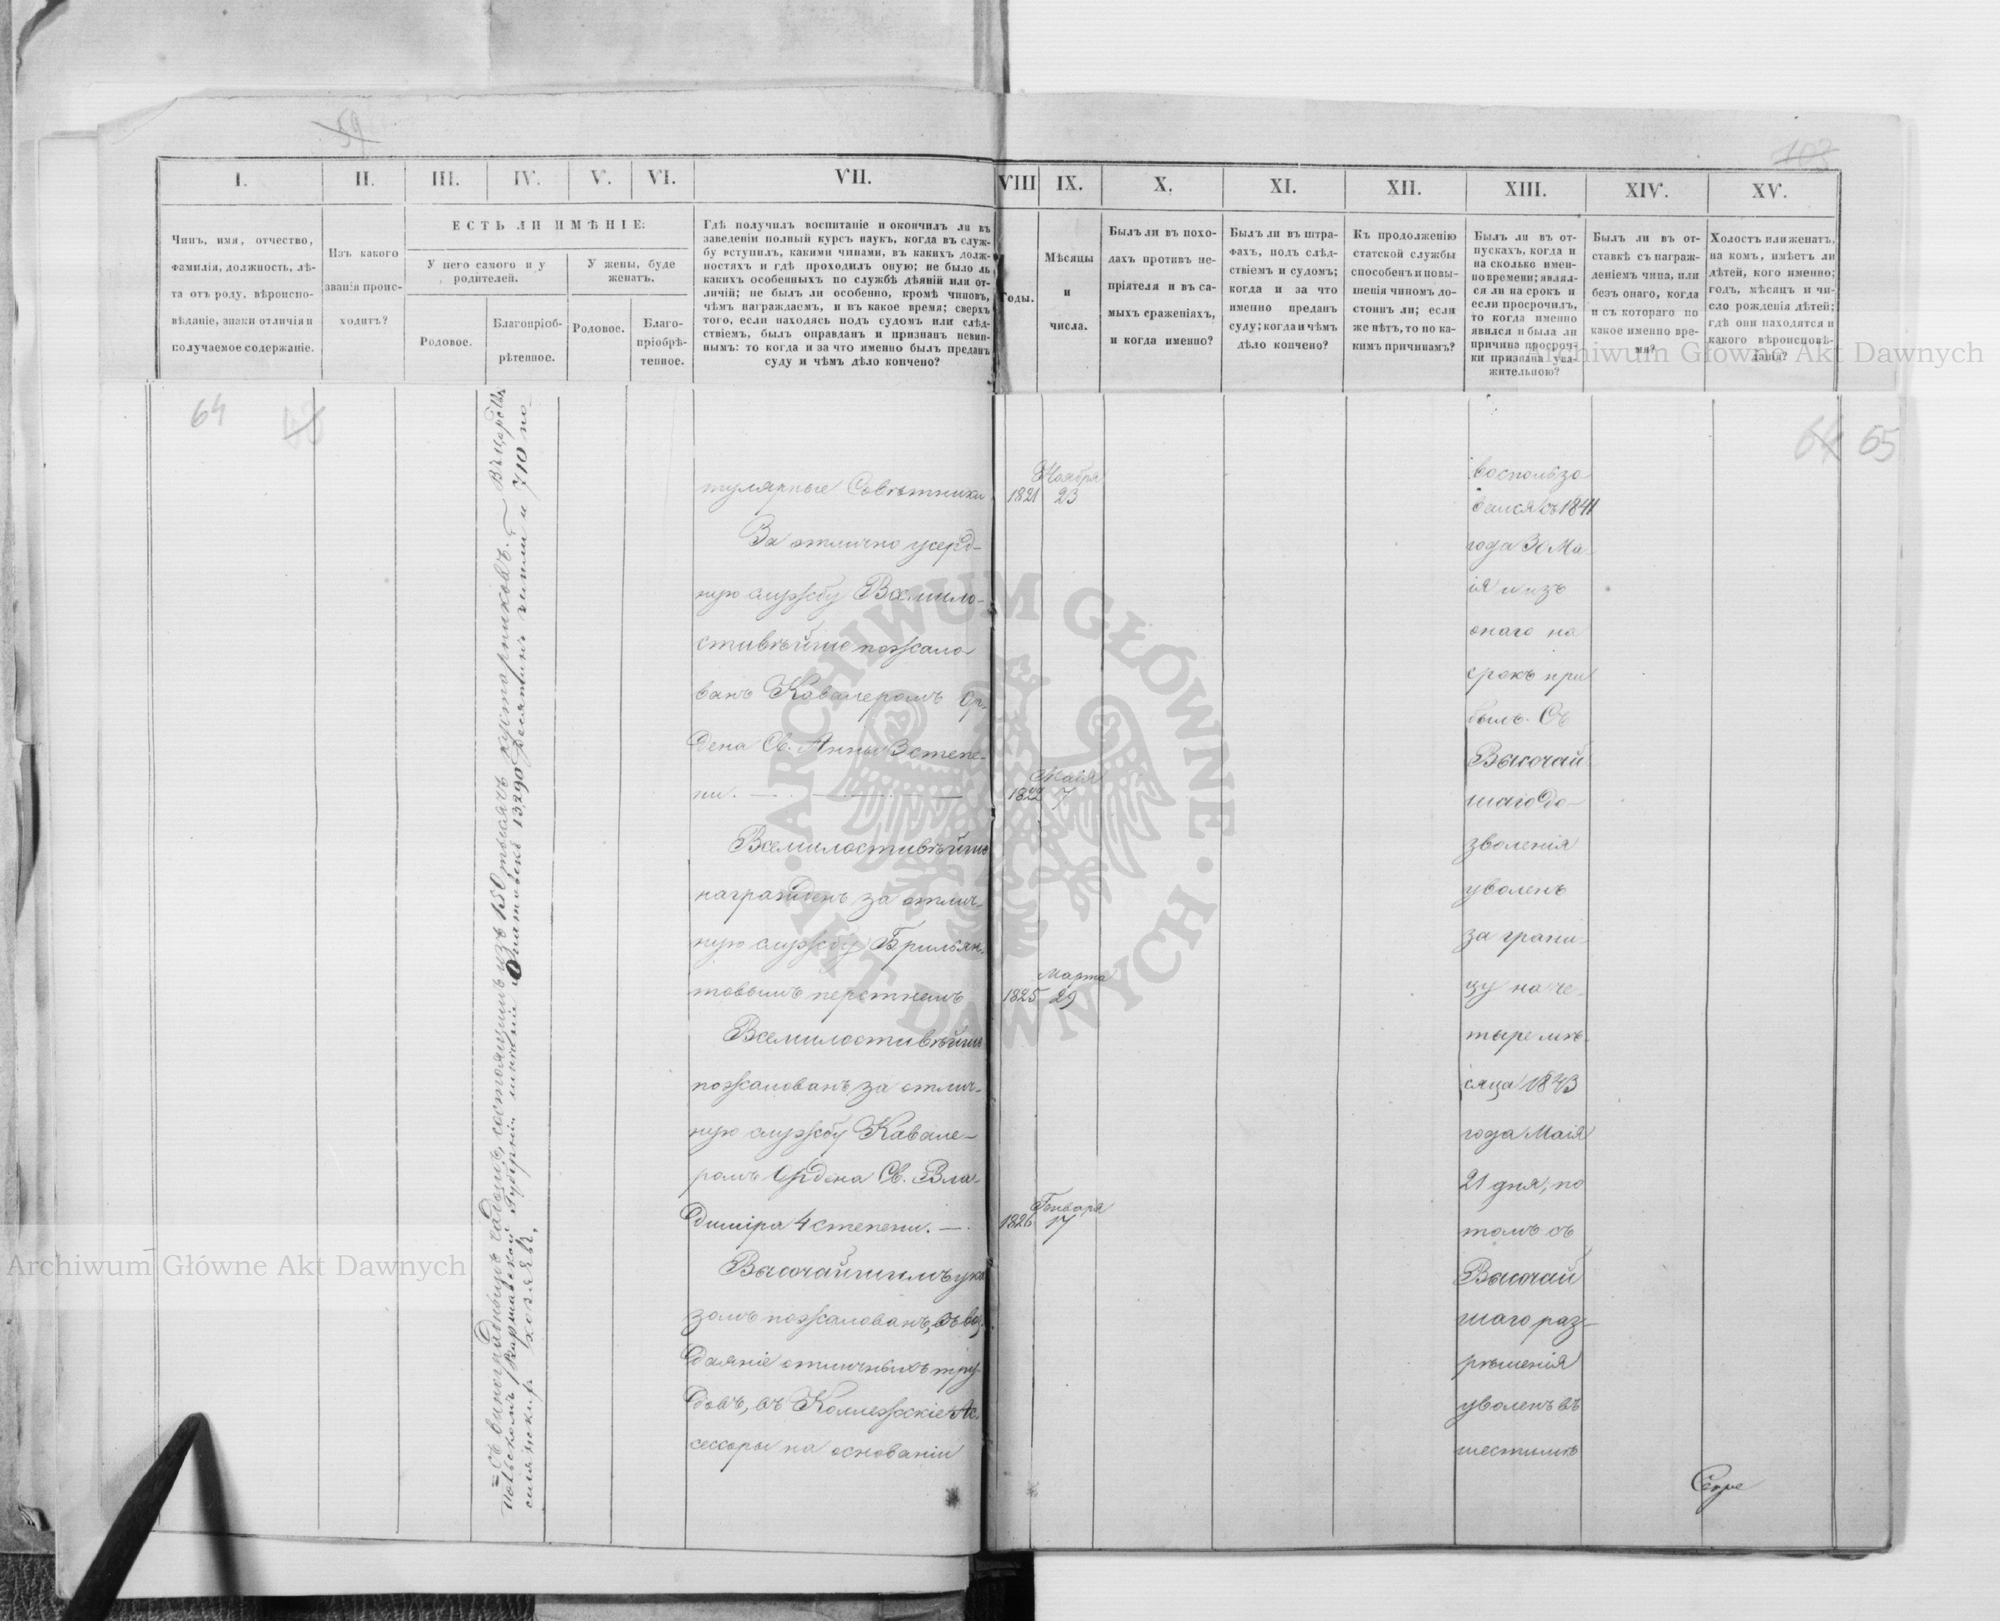 59
103
I.
II.
III.
IV.
V.
VI.
VII.
VIII
IX.
X.
XI.
XII.
XIII.
XIV.
XV.
Чинъ, имя, отчество,
фамилія, должность, лѣ-
та отъ роду, вѣроиспо-
вѣданіе, знаки отличія и
получаемое содержаніе.
Изъ какого
званія проис-
ходитъ?
ЕСТЬ ЛИ ИМѢНІЕ:
У него самого и у
родителей.
У жены, буде
женатъ.
Родовое.
Благопріоб-
рѣтенное.
Родовое.
Благо-
пріобрѣ-
тенное.
Гдѣ получилъ воспитаніе и окончилъ ли въ
заведеніи полный курсъ наукъ, когда въ служ-
бу вступилъ, какими чинами, въ какихъ долж-
ностяхъ и гдѣ проходилъ оную; не было ль
какихъ особенныхъ по службѣ дѣяній или от-
личій; не былъ ли особенно, кромѣ чиновъ,
чѣмъ награждаемъ, и въ какое время; сверхъ
того, если находясь подъ судомъ или слѣд-
ствіемъ, былъ оправданъ и признанъ невин-
нымъ: то когда и за что именно былъ преданъ
суду и чѣмъ дѣло кончено?
Годы.
Мѣсяцы
и
числа.
Былъ ли въ похо-
дахъ противъ не-
пріятеля и въ са-
мыхъ сраженіяхъ,
и когда именно?
Былъ ли въ штра-
фахъ, подъ слѣд-
ствіемъ и судомъ;
когда и за что
именно преданъ
суду; когда и чѣмъ
дѣло кончено?
Къ продолженію
статской службы
способенъ и повы-
шенія чиномъ до-
стоинъ ли; если
же нѣтъ, то по ка-
кимъ причинамъ?
Былъ ли въ от-
пускахъ, когда и
на сколько имен-
но времени; являл-
ся ли на срокъ и
если просрочилъ,
то когда именно
явился и была ли
причина просроч-
ки признана ува-
жительною?
Былъ ли въ от-
ставкѣ съ награж-
деніемъ чина, или
безъ онаго, когда
и съ котораго по
какое именно вре-
мя?
Холостъ или женатъ,
на комъ, имѣетъ ли
дѣтей, кого именно;
годъ, мѣсяцъ и чи-
сло рожденія дѣтей;
гдѣ они находятся и
какого вѣроисповѣ-
данія?
64
64 65
=съ винограднымъ садомъ, состоящимъ изъ 150 тысячъ кустарниковъ. Въ Царствѣ
Польскомъ Варшавской Губерніи имѣніе Опатовекъ 13,290 десятинъ земли и 710 по-
селянскихъ хозяевъ.
тулярные Совѣтники
За отлично усерд-
ную службу Всемило-
стивѣйше пожало
ванъ Кавалеромъ Ор-
дена Св. Анны 3 степе-
ни.
Всемилостивѣйше
награжденъ за отлич-
ную службу Брильян-
товымъ перстнемъ
Всемилостивѣйше
пожалованъ за отлич-
ную службу Кавале-
ромъ Ордена Св. Вла-
димира 4 степени.
Высочайшимъ ука
зомъ пожалованъ, въ воз-
даяніе отличныхъ тру-
довъ, въ Коллежскіе Ас-
сессоры на основаніи
1821 Ноября 23
1822 Маія 7
1825 Марта 29
1826 Генваря 17
воспользо
вался съ 1841
года 30 Ма-
ія и изъ
онаго на
срокъ при
былъ. Съ
Высочай
шаго до-
зволенія
уволенъ
за грани-
цу на че-
тыре мѣ-
сяца 1843
года Маія
21 дня, по
томъ съ
Высочай
шаго раз-
рѣшенія
уволенъ въ
шестимѣ
ARCHIWUM GŁÓWNE · AKT DAWNYCH ·
Archiwum Główne Akt Dawnych
Archiwum Główne Akt Dawnych